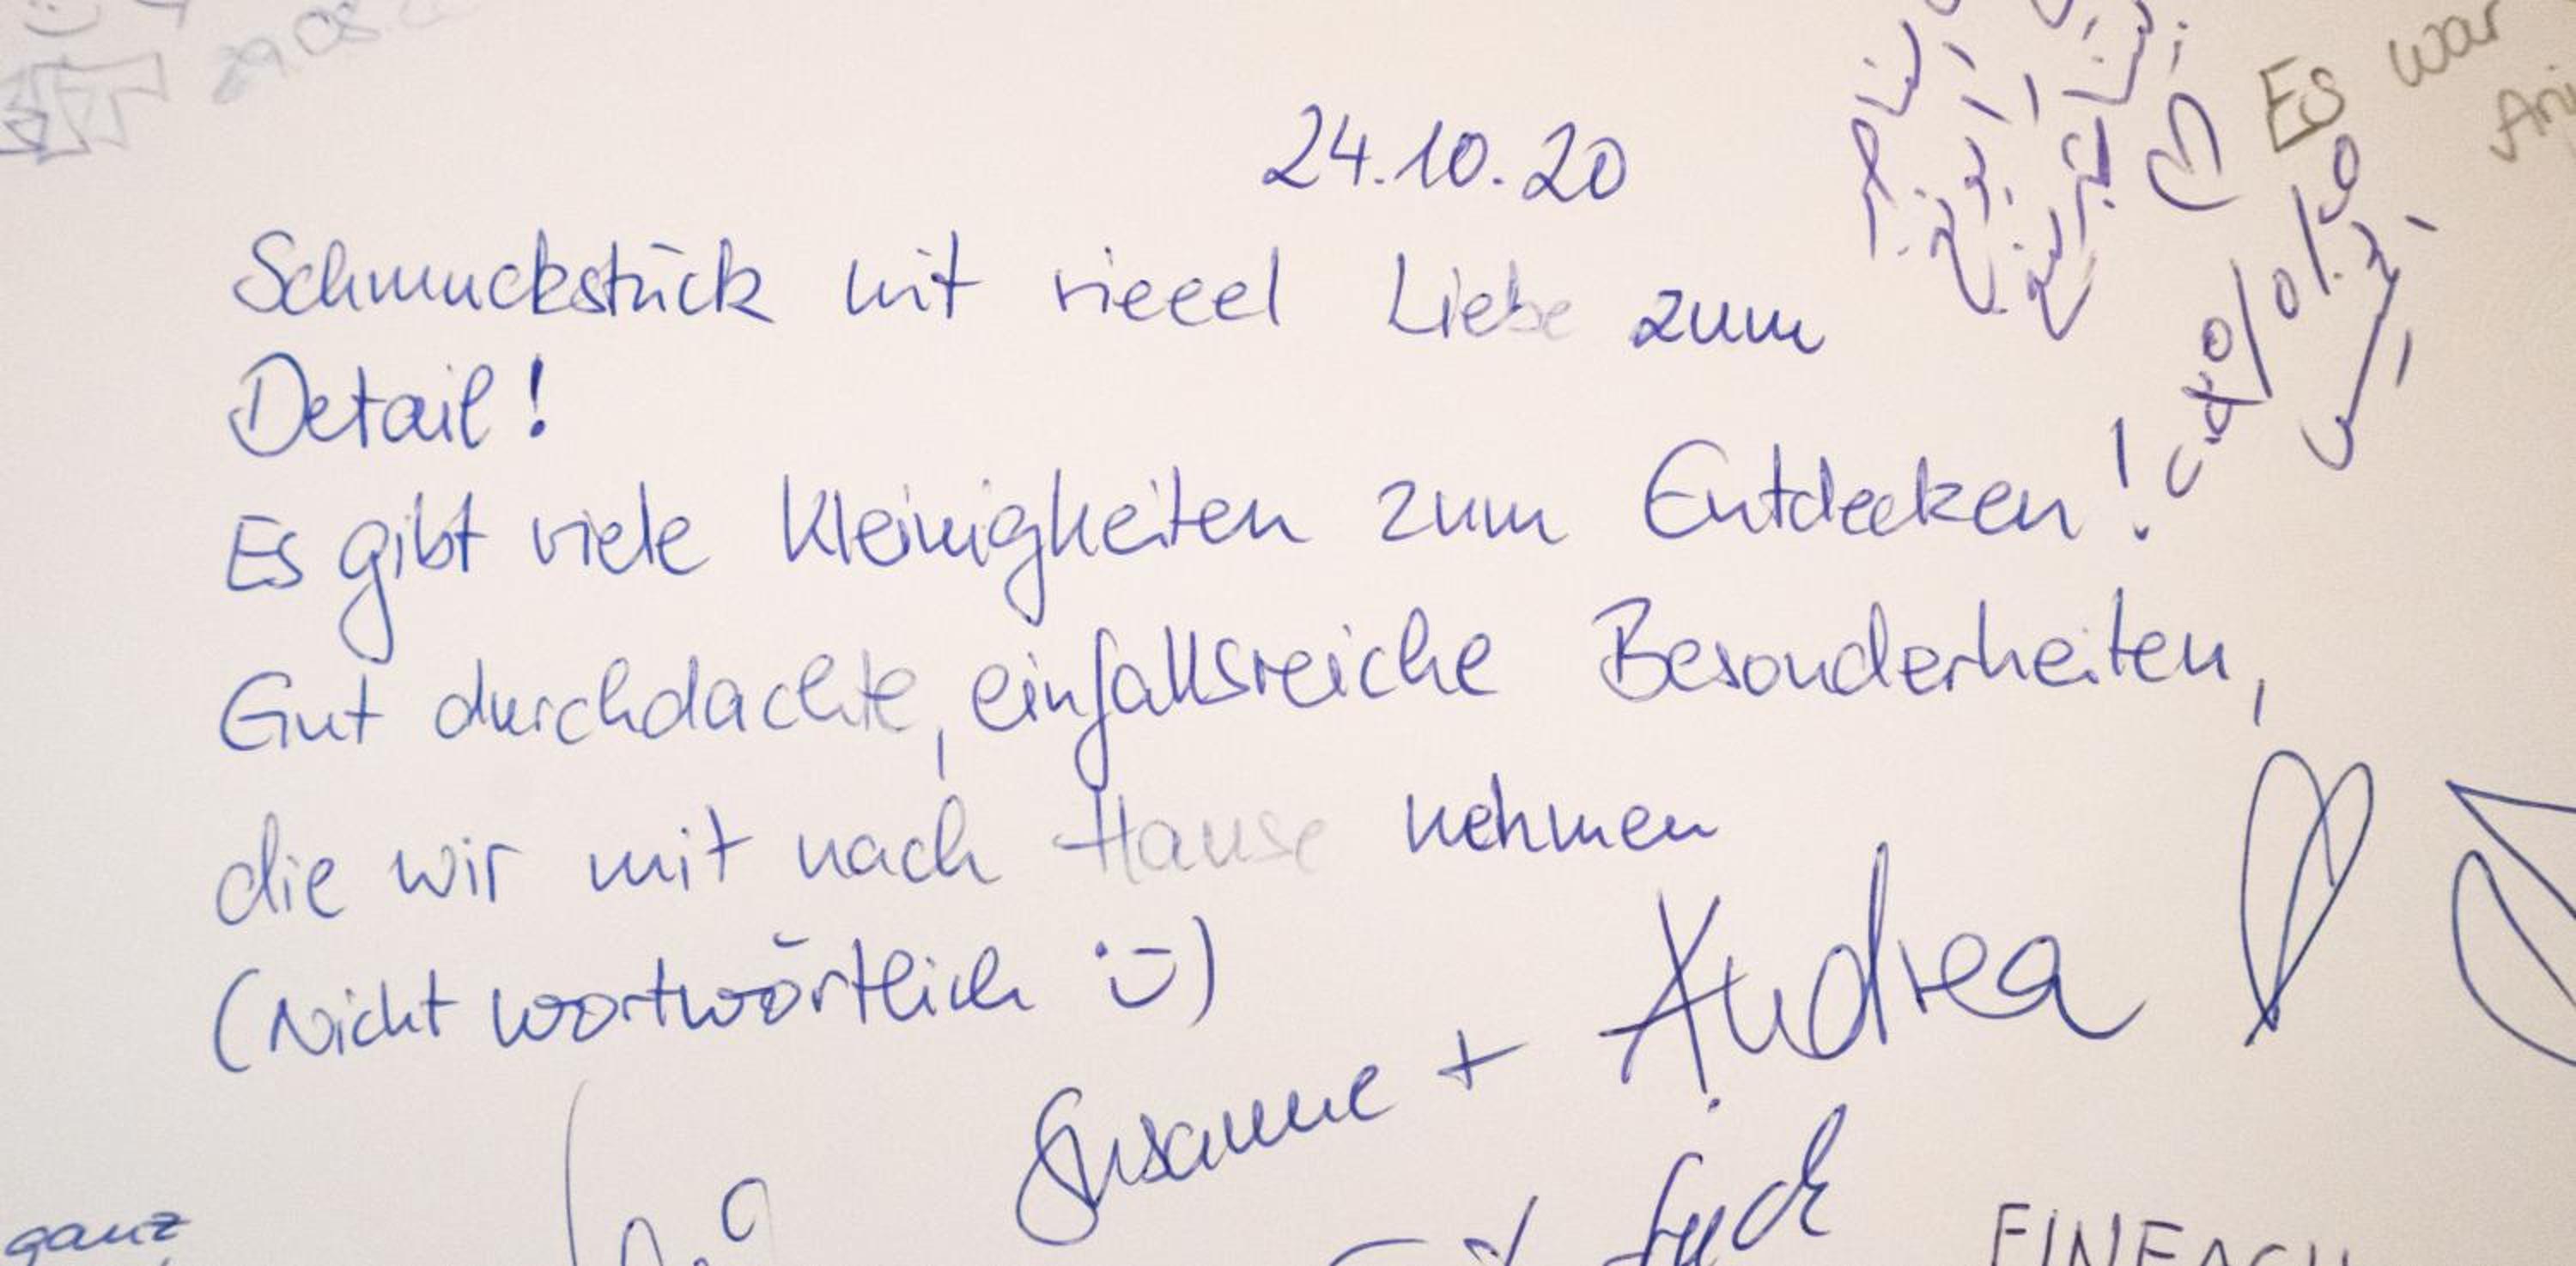 24.10.20
Schmuckstück mit vieeel Liebe zum
Detail!
Es gibt viele Kleinigkeiten zum Entdecken!
Gut durchdachte, einfallsreiche Besonderheiten,
die wir mit nach Hause nehmen
(Nicht wortwörtlich :-))
Susanne + Andrea
Es war
ganz
EINFACH